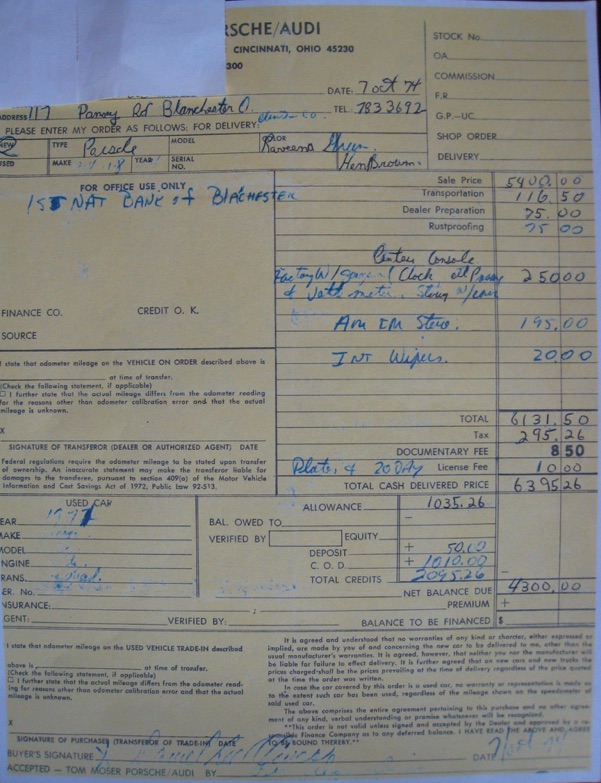 RSCHE/AUDI
CINCINNATI, OHIO 45230
300
STOCK No.
OA
COMMISSION
F.R
G.P.-UC
SHOP ORDER
DELIVERY
DATE: 7 Oct 74
ADDRESS 117 Rd Blanchester O. TEL. 7833692
PLEASE ENTER MY ORDER AS FOLLOWS: FOR DELIVERY:
NEW USED TYPE Porsche MODEL COLOR Green
MAKE YEAR SERIAL NO. Brown
FOR OFFICE USE ONLY
1ST NAT BANK of BLACHESTER
FINANCE CO. CREDIT O. K.
SOURCE
Sale Price 5400.00
Transportation 116.50
Dealer Preparation 75.00
Rustproofing 75 00
Center Console
Factory W/ Clock 250 00
Am FM Stereo. 195.00
INT Wipers. 20.00
I state that odometer mileage on the VEHICLE ON ORDER described above is
at time of transfer.
(Check the following statement, if applicable)
☐ I further state that the actual mileage differs from the odometer reading
for the reasons other than odometer calibration error and that the actual
mileage is unknown.
X
SIGNATURE OF TRANSFEROR (DEALER OR AUTHORIZED AGENT) DATE
Federal regulations require the odometer mileage to be stated upon transfer
of ownership. An inaccurate statement may make the transferor liable for
damages to the transferee, pursuant to section 409(a) of the Motor Vehicle
Information and Cost Savings Act of 1972, Public Law 92-513.
TOTAL 6131.50
Tax 295.26
DOCUMENTARY FEE 8 50
Plates & 20 DAY License Fee 10 00
TOTAL CASH DELIVERED PRICE 6395 26
USED CAR
EAR 1971
AKE
MODEL
NGINE
RANS.
ER. No.
NSURANCE:
GENT: VERIFIED BY:
ALLOWANCE 1035.26
BAL. OWED TO −
VERIFIED BY EQUITY
DEPOSIT + 50.00
C. O. D. + 1010.00
TOTAL CREDITS 2095.26 −
NET BALANCE DUE 4300.00
PREMIUM +
BALANCE TO BE FINANCED $
I state that odometer mileage on the USED VEHICLE TRADE-IN described
above is at time of transfer.
(Check the following statement, if applicable)
☐ I further state that the actual mileage differs from the odometer read-
ing for reasons other than odometer calibration error and that the actual mileage
is unknown.
X
SIGNATURE OF PURCHASER (TRANSFEROR OF TRADE-IN) DATE
It is agreed and understood that no warranties of any kind or charter, either expressed or
implied, are made by you and of concerning the new car to be delivered to me, other than the
usual manufacturer's warranties. It is agreed, however, that neither you nor the manufacturer will
be liable for failure to effect delivery. It is further agreed that on new cars and new trucks the
prices charged shall be the prices prevailing at the time of delivery regardless of the price quoted
at the time the order was written.
In case the car covered by this order is a used car, no warranty or representation is made as
to the extent such car has been used, regardless of the mileage shown on the speedometer of
said used car.
The above comprises the entire agreement pertaining to this purchase and no other agree-
ment of any kind, verbal understanding or promise whatsoever will be recognized.
**This order is not valid unless signed and accepted by the Dealer and approved by a re-
sponsible Finance Company as to any deferred balance. I HAVE READ THE ABOVE AND AGREE
TO BE BOUND THEREBY.**
BUYER'S SIGNATURE X DATE 7 Oct 74
ACCEPTED — TOM MOSER PORSCHE/AUDI BY